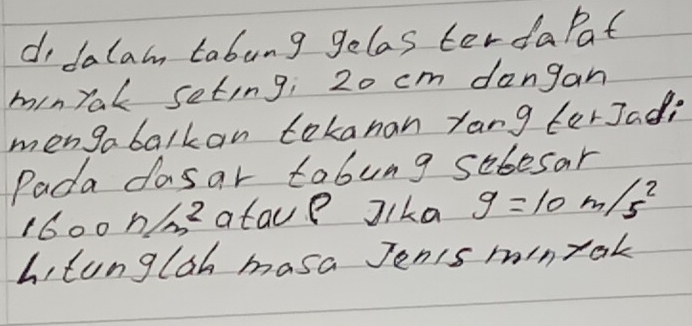 di dalam tabung gelas terdapat
minyak setingi 20 cm dengan
mengabaikan tekanan yang terjadi
Pada dasar tabung sebesar
1600 n/m² atau P Jika g = 10 m/s²
hitunglah masa Jenis minyak